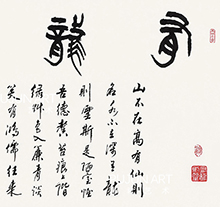 有龍
山不在高有仙則
名水不在深有龍
則靈斯是陋室惟
吾德馨苔痕上階
綠草色入簾青談
笑有鴻儒往來